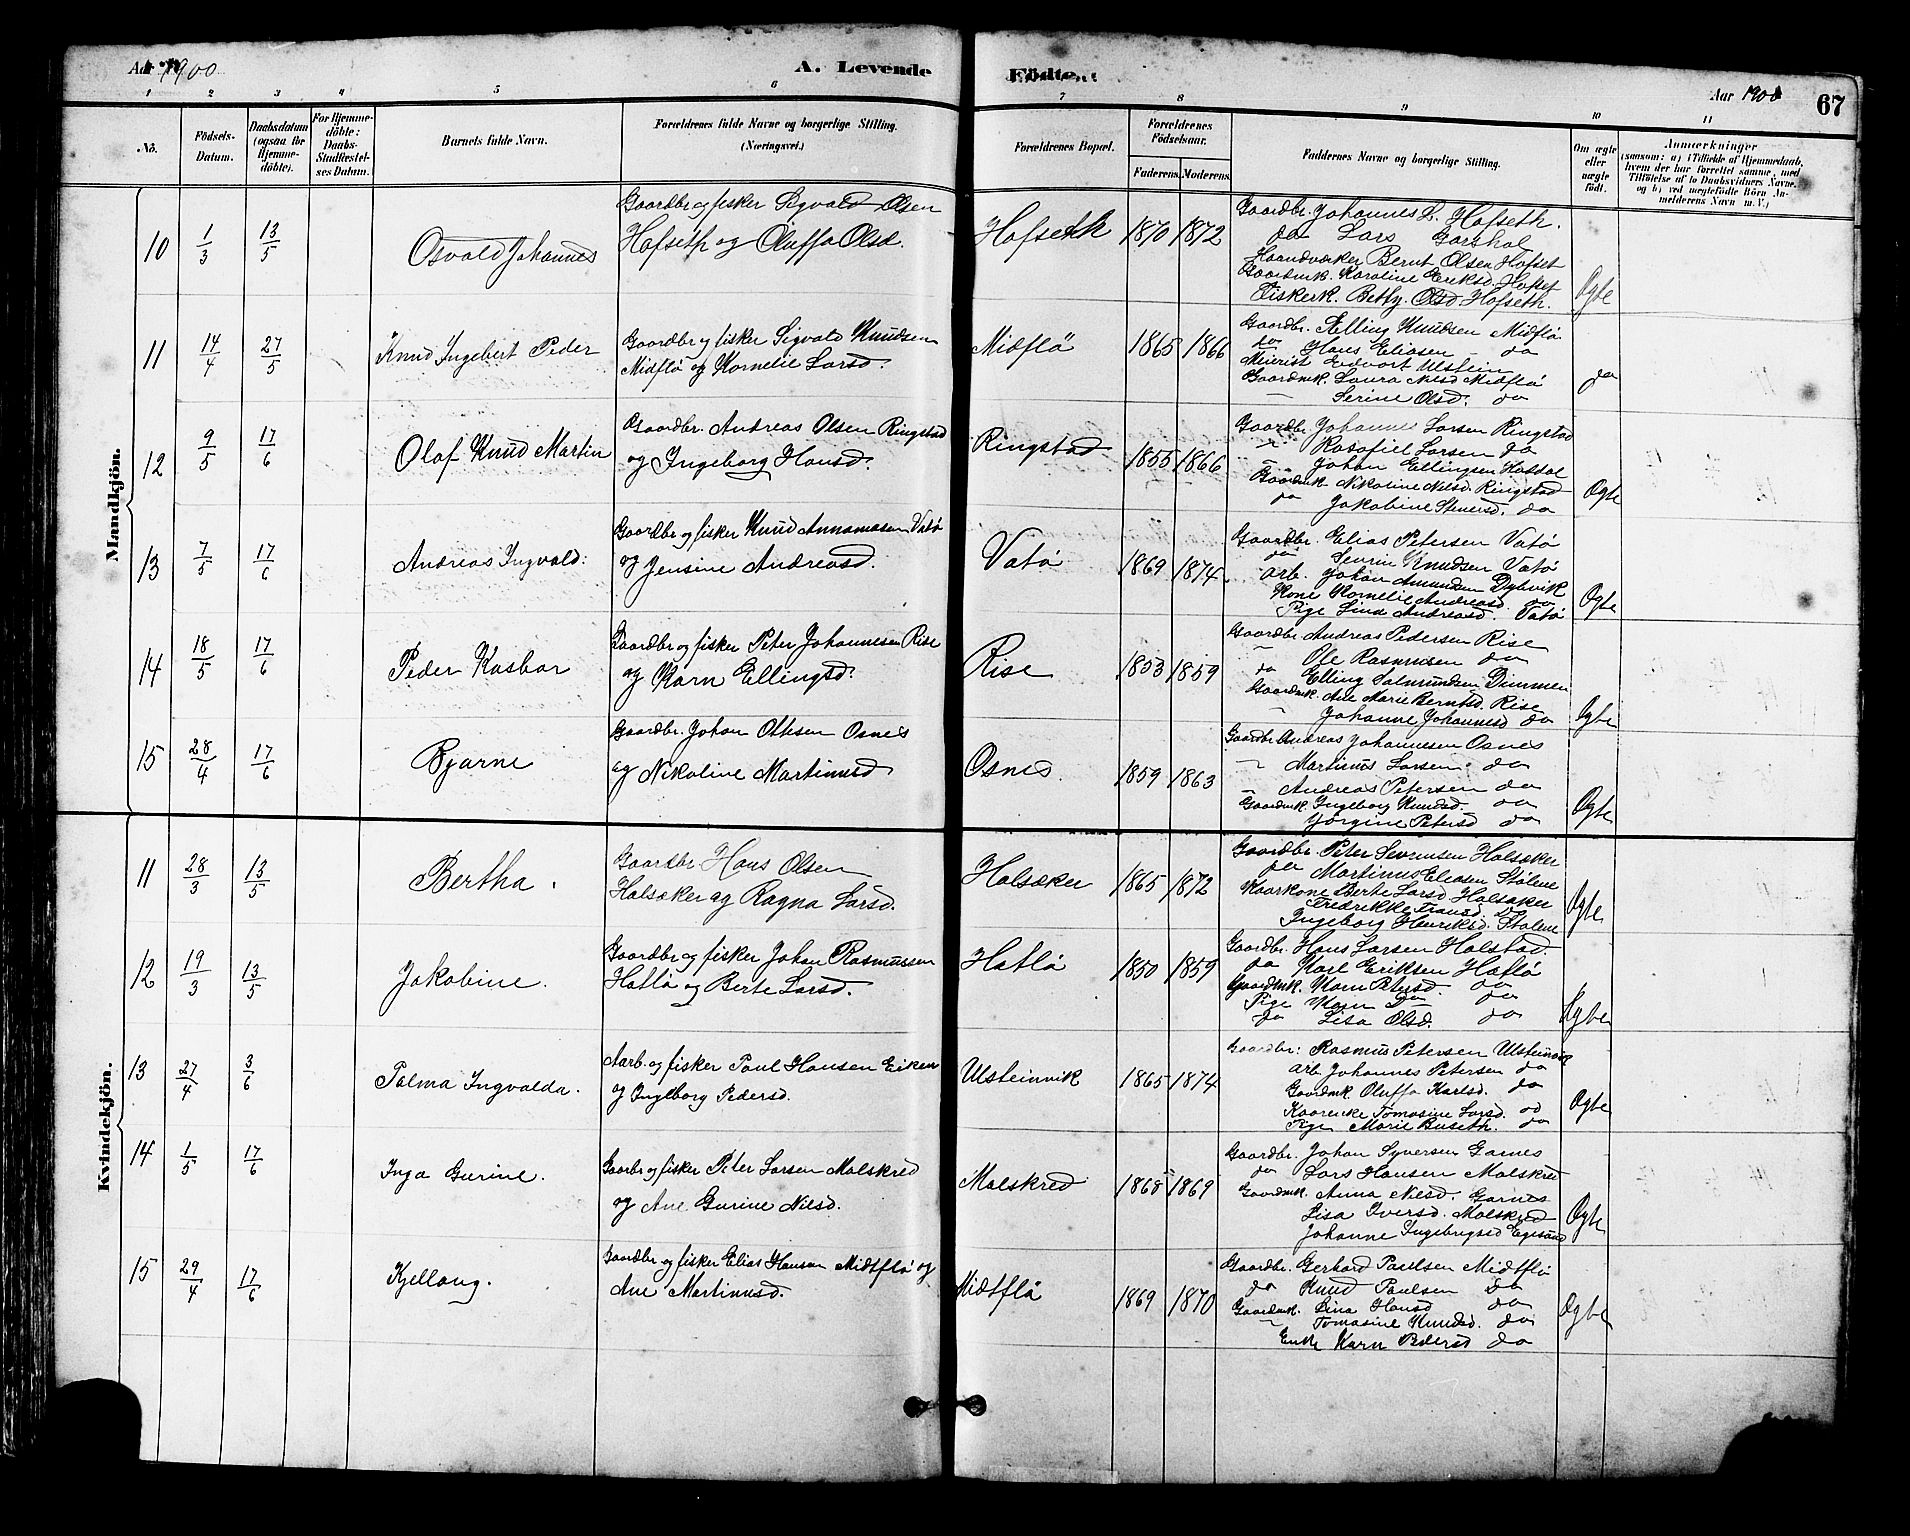 Aar 1900
A. Levende
Födte.
Aar 1900
67
1 2 3 4 5 6 7 8 9 10 11
No.
Födsels-Datum.
Daabsdatum (ogsaa for Hjemme-döbte).
For Hjemme-döbte: Daabs-Stadfæstel-ses Datum.
Barnets fulde Navn.
Forældrenes fulde Navne og borgerlige Stilling. (Næringsvei.)
Forældrenes Bopæl.
Forældrenes Födselsaar.
Faderens. Moderens.
Faddernes Navne og borgerlige Stilling.
Om ægte eller uægte födt.
Anmærkninger
(saasom: a) i Tilfælde af Hjemmedaab, hvem der har forrettet samme, med Tilföielse af to Daabsvidners Navne, og b) ved uægtefödte Börn An-melderens Navn m. V.)
Mandkjön.
10 1/3 13/5 Osvald Johannes
Gaardbr og fisker Sigvald Olsen
Hofseth og Oluffa Olsd.
Hofseth 1870 1872
Gaardbr. Johannes L. Hofseth.
do Lars Garshol
Haandværker Bernt Olsen Hofset
Gaardmk. Karoline Eriksd. Hofset
Fiskerk. Betty Olsd Hofseth.
Ægte
11 14/4 27/5 Knud Ingebert Peder
Gaardbr og fisker Sigvald Knudsen
Midflö og Kornelie Larsd.
Midflö 1865 1866
Gaardbr. Elling Knudsen Midflö
do Hans Eliasen do
Meierist Edvart Ulstein
Gaardmk. Laura Nilsd Midflö
— Serine Olsd. do
do
12 9/5 17/6 Olaf Knud Martin
Gaardbr. Andreas Olsen Ringstad
og Ingeborg Hansd.
Ringstad 1855 1866
Gaardbr Johannes Larsen Ringstad
— Rasofiel Larsen do
— Johan Ellingsen
Gaardmk Nikoline Nilsd. Ringstad
do Jakobine Steinsd. do
Ægte
13 7/5 17/6 Andreas Ingvald.
Gaardbr og fisker Knud Annanias​en Vatö
og Jensine Andreasd.
Vatö 1869 1874
Gaardbr. Elias Petersen Vatö
do Sevrin Knudsen Vatö
Arb. Johan Amundsen Dybvik
Kone Kornelie Andreasd. do
Pige Lina Andreasd. Vatö
Ægte
14 18/5 17/6 Peder Kasbar
Gaardbr og fisker Peter Johannesen Rise
og Karn Ellingsd.
Rise 1853 1859
Gaardbr. Andreas Pedersen Rise
— Ole Rasmusen do
do Elling Salmundsen Dimmen
Gaardmk. Ane Marie Berntsd. Rise
— Johanne Johannesd do
Ægte
15 28/4 17/6 Bjarne
Gaardbr. Johan Ottesen Osnes
og Nikoline Martinusd
Osnes. 1859 1863
Gaardbr Andreas Johannesen Osnes
— Martinus Larsen do
— Andreas Petersen do
Gaardmk. Ingeborg Knudsd. do
Jörgine Petersd do
Ægte
Kvindekjön.
11 28/3 13/5 Bertha.
Gaardbr Hans Olsen
Halsæker og Ragna Larsd.
Halsæker 1865 1872
Gaardbr. Peter Sevrensen Halsæker
do Martinus Eliasen Stölene
Kaarkone Berte Larsd Halsæker
Fredrikke Fransd. do
Ingeborg Henriksd. Stölene
Ægte
12 19/3 13/5 Jakobine.
Gaardbr og fisker Johan Rasmussen
Hatlö og Berte Larsd.
Hatlö 1850 1859
Gaardbr. Hans Larsen Halstad.
do Karl Eriksen Hatlö
Gaardmk. Karn Petersd. do
Pige Karn do do
do Lisa Olsd. do
Ægte
13 27/4 3/6 Palma Ingvalda.
Aarb. og fisker Paul Hansen Eiken
og Ingeborg Pedersd.
Ulsteinvik 1865 1874
Gaardbr. Rasmus Petersen Ulsteinvik
Arb. Johannes Petersen do
Gaardmk Oluffa Karlsd. do
Kaarenke Tomasine Larsd. do
Pige Marie Buseth. do
Ægte
14 1/5 17/6 Inga Gurine.
Gaarbr og fisker Peter Larsen Malskred
og Ane Gurine Nilsd.
Malskred 1868 1869
Gaardbr. Johan Syversen Garnes
do Lars Hansen Malskred
Gaardmk. Anna Nilsd. Garnes
Lisa Iversd. Malskred
Johanne Ingebrigtsd Egesund
Ægte
15 29/4 17/6 Kjellaug.
Gaardbr og fisker Elias Hansen Midtflö og
Ane Martinusd.
Midtflö 1869 1870
Gaardbr. Gerhard Paulsen Midtflö
do Knud Paulsen do
Gaardmk. Lina Hansd do
— Tomasine Knudsd. do
Enke Karn Pedersd do
Ægte